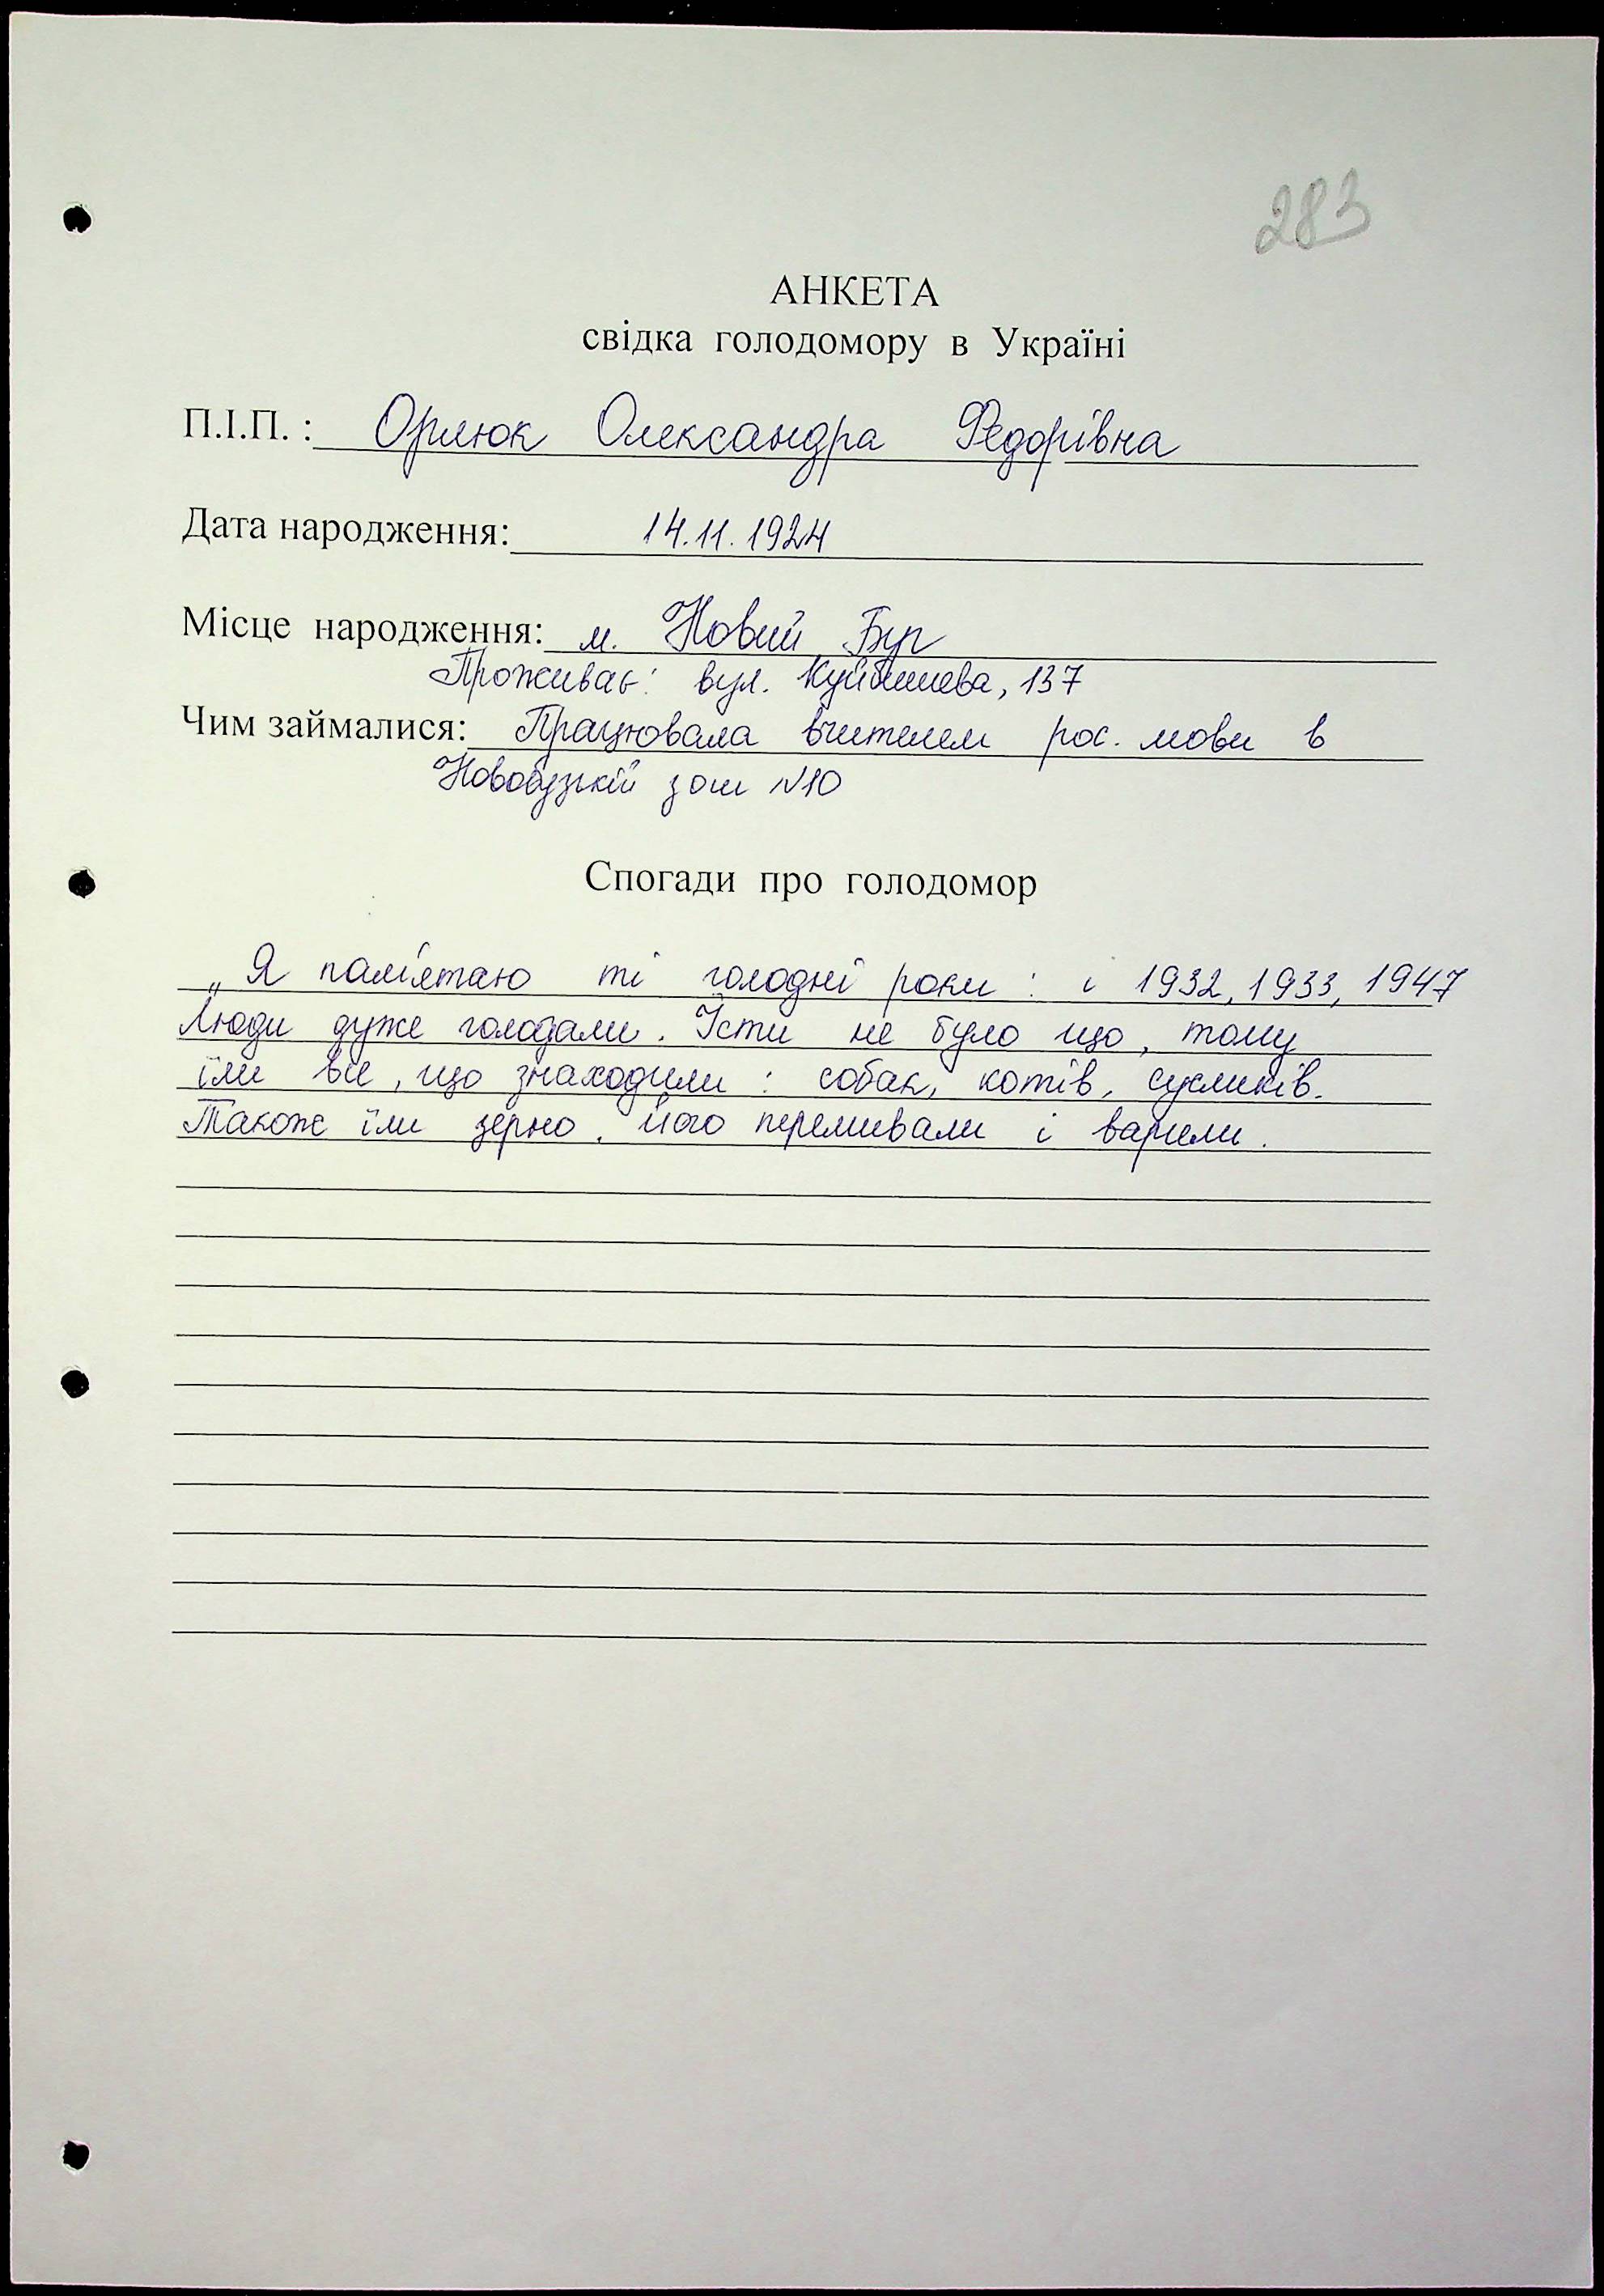 283
АНКЕТА
свідка голодомору в Україні
П.І.П. : Орлюк Олександра Федорівна
Дата народження: 14.11.1924
Місце народження: м. Новий Буг
Проживає: вул. Куйбишева, 137
Чим займалися: Працювала вчителем рос. мови в
Новобузькій зош №10
Спогади про голодомор
„Я пам'ятаю ті голодні роки : і 1932, 1933, 1947
Люди дуже голодали. Їсти не було що, тому
їли все, що знаходили : собак, котів, сусликів.
Також їли зерно, його перемивали і варили.